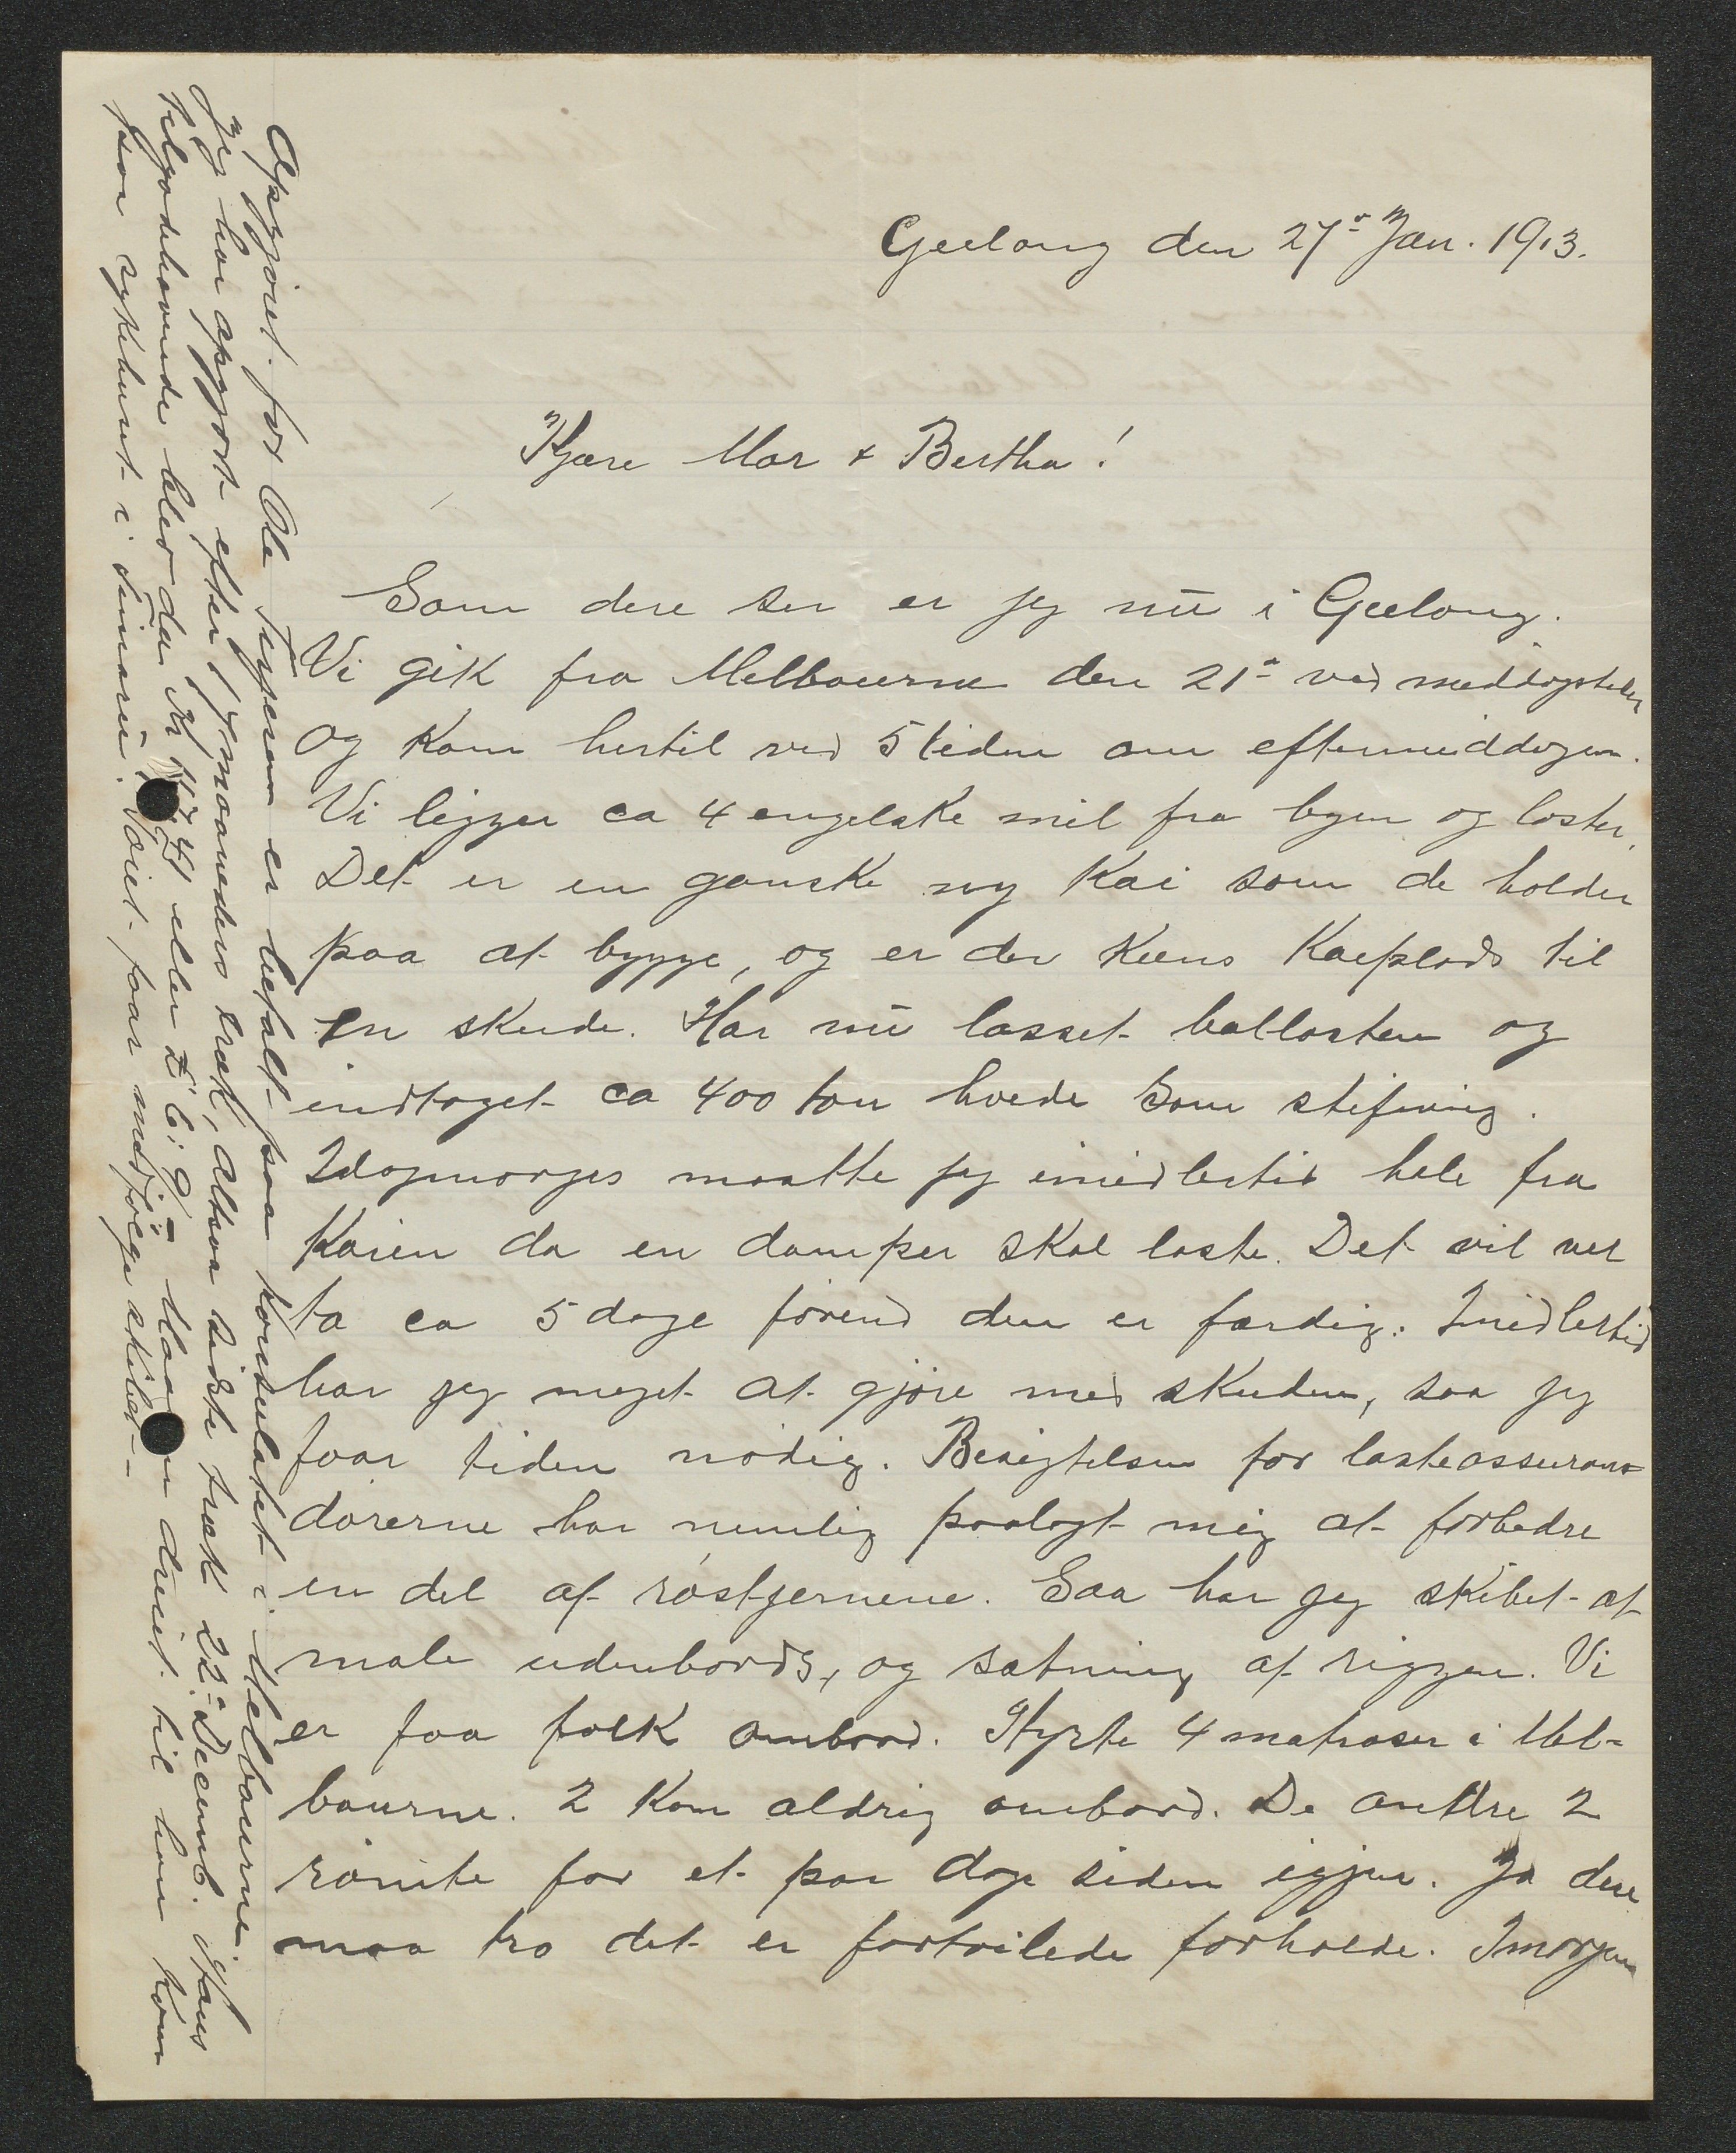 Geelong den 27de Jan. 1913.
Kjære Mor & Bertha!
Som dere ser er jeg nu i Geelong.
Vi gik fra Melbourne den 21de ved middagstider
og kom hertil ved 5 tiden om eftermiddagen.
Vi ligger ca 4 engelske mil fra byen og laster.
Det er en ganske ny kai som de holder
paa at bygge, og er der kuns kaiplads til
en skude. Har nu losset ballasten og
indtaget ca 400 ton hvede som stifning.
Idagmorges maatte jeg imidlertid hale fra
kaien da en damper skal laste. Det vil vel
ta ca 5 dage förend den er færdig. Imidlertid
har jeg meget at gjöre med skuden, saa jeg
faar tiden nödig. Besigtelsen for lasteassuran-
dörerne har nemlig paalagt mig at forbedre
en del af röstjernene. Saa har jeg skibet at
male udenbords, og sætning af riggen. Vi
er faa folk ombord. Hyrte 4 matroser i Mel-
bourne. 2 kom aldrig ombord. De andre 2
römte for et par dage siden igjen. Ja dere
maa tro det er fortvilede forholde. Imorgen
Opgjöret for Ole Terjesen er betalt paa konsulatet i Melbourne.
Jeg har opgjort efter 17 maaneders træk, altsaa sidste træk 22de Decemb. Hans
tilgodehavende blev da Kr 117.41 eller £ 6:9:– Maa en du ut til ham kom
paa sykehuset i Simaria. Töiet faar medfölge skibet –